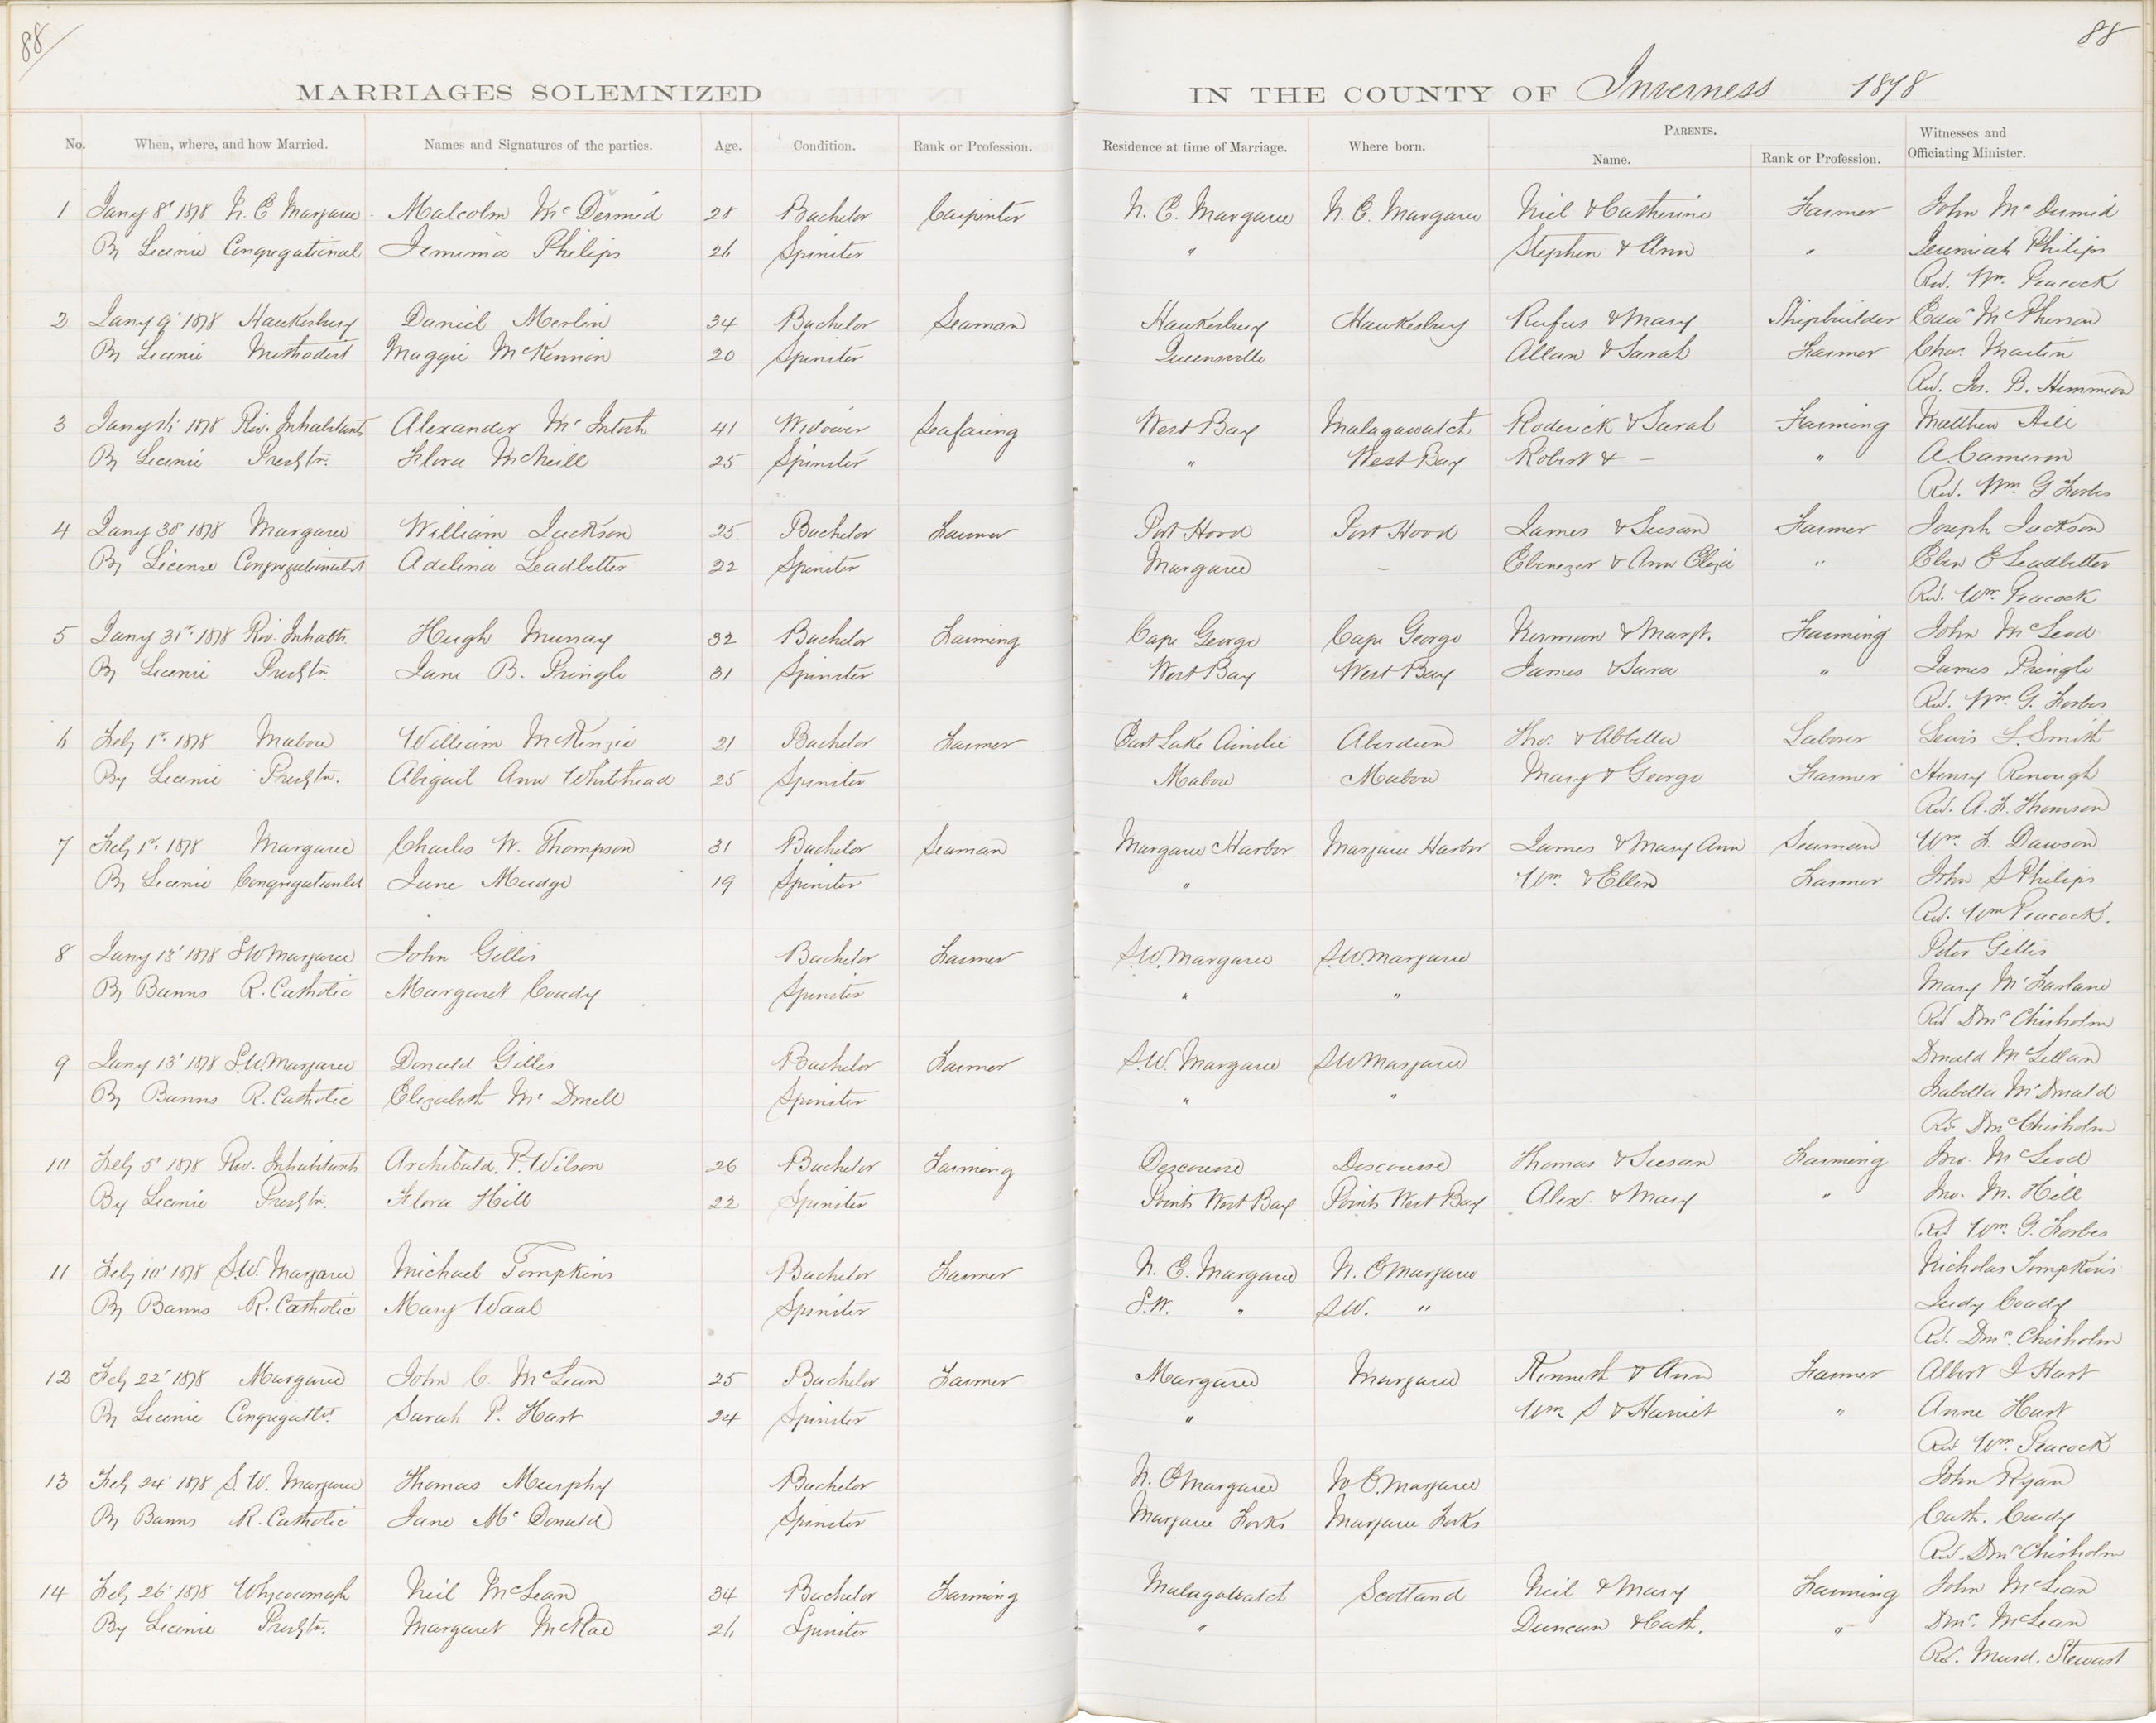 88 88
MARRIAGES SOLEMNIZED IN THE COUNTY OF Inverness 1878
No. When, where, and how Married. Names and Signatures of the parties. Age. Condition. Rank or Profession. Residence at time of Marriage. Where born. PARENTS. Name. Rank or Profession. Witnesses and Officiating Minister.
1 Jany 8' 1878 N. E. Margaree Malcolm McDermid 28 Bachelor Carpenter N. E. Margaree N. E. Margaree Niel & Catherine Farmer John McDermid
By License Congregational Jemima Philips 26 Spinster " Stephen & Ann " Jeremiah Philips
Rev. Wm. Peacock
2 Jany 9' 1878 Hawkesbury Daniel Merlin 34 Bachelor Seaman Hawkesbury Hawkesbury Rufus & Mary Shipbuilder Edwd McPherson
By License Methodist Maggie McKinnon 20 Spinster Queensville Allan & Sarah Farmer Chas. Martin
Rev. Jos. B. Hemmeon
3 Jany 1878 Riv. Inhabitants Alexander McIntosh 41 Widower Seafaring West Bay Malagawatch Roderick & Sarah Farming Matthew Hill
By License Presbtn. Flora McNeill 25 Spinster " West Bay Robert & – " A. Cameron
Rev. Wm. G Forbes
4 Jany 30' 1878 Margaree William Jackson 25 Bachelor Farmer Port Hood Port Hood James & Susan Farmer Joseph Jackson
By License Congregationalist Adelina Leadbetter 22 Spinster Margaree – Ebenezer & Ann Eliza " Eben E Leadbetter
Rev. Wm. Peacock
5 Jany 31st 1878 Riv. Inhabts. Hugh Murray 32 Bachelor Farming Cape George Cape George Norman & Margt. Farming John McLeod
By License Presbtn. Jane B. Pringle 31 Spinster West Bay West Bay James & Sara " James Pringle
Rev. Wm. G. Forbes
6 Feby 1st 1878 Mabou William McKenzie 21 Bachelor Farmer East Lake Ainslie Aberdeen Thos. & Abbella Laborer Lewis L. Smith
By License Presbtn. Abigail Ann Whitehead 25 Spinster Mabou Mabou Mary & George Farmer Henry
Rev. A. F. Thomson
7 Feby 1st 1878 Margaree Charles W. Thompson 31 Bachelor Seaman Margaree Harbor Margaree Harbor James & Mary Ann Seaman Wm. F. Dawson
By License Congregationlist Jane Mudge 19 Spinster " Wm. & Ellen Farmer John S Philips
Rev. Wm Peacock.
8 Jany 13' 1878 S W Margaree John Gillis Bachelor Farmer S.W. Margaree S.W. Margaree Peter Gillis
By Banns R. Catholic Margaret Coady Spinster " " Mary McFarlane
Rev Dnc Chisholm
9 Jany 13' 1878 S.W. Margaree Donald Gillis Bachelor Farmer S.W. Margaree S W Margaree Donald McLellan
By Banns R. Catholic Elizabeth McDonell Spinster " " Isabella McDonald
Rev. Dnc Chisholm
10 Feby 5' 1878 Riv. Inhabitants Archibald. P. Wilson 26 Bachelor Farming Descousse Descousse Thomas & Susan Farming Jno. McLeod
By License Presbtn. Flora Hill 22 Spinster Points West Bay Points West Bay Alex. & Mary " Jno. M. Hill
Rev Wm. G. Forbes
11 Feby 10' 1878 S.W. Margaree Michael Tompkins Bachelor Farmer N. E. Margaree N. E Margaree Nicholas Tompkins
By Banns R. Catholic Mary Waal Spinster S.W. " S.W. " Judy Coady
Rev. Dnc. Chisholm
12 Feby 22' 1878 Margaree John C. McLean 25 Bachelor Farmer Margaree Margaree Kenneth & Ann Farmer Albert I Hart
By License Congregatlst. Sarah P. Hart 24 Spinster " Wm S & Harriet " Anne Hart
Rev Wm. Peacock
13 Feby 24' 1878 S. W. Margaree Thomas Murphy Bachelor N. E Margaree N E. Margaree John Ryan
By Banns R. Catholic Jane McDonald Spinster Margaree Forks Margaree Forks Cath. Coady
Rev. Dnc Chisholm
14 Feby 26' 1878 Whycocomagh Neil McLean 34 Bachelor Farming Malagawatch Scotland Neil & Mary Farming John McLean
By License Presbtn. Margaret McRae 26 Spinster " Duncan & Cath. " Dnc. McLean
Rev. Murd. Stewart